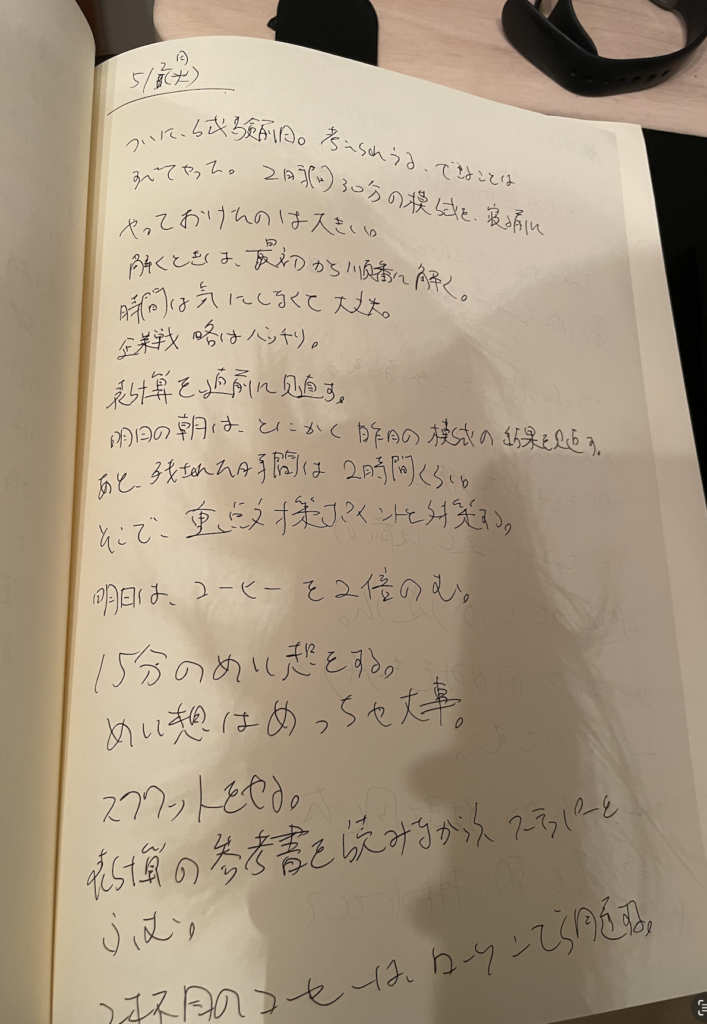 5/2(火)
ついに、試験前日。考えられうる、できることは
すべてやった。2時間30分の模試を、寝る前に
やっておけたのは大きい。
解くときは、最初から順番に解く。
時間は気にしなくて大丈夫。
企業戦略はバッチリ。
表計算を直前に見直す。
明日の朝は、とにかく昨日の模試の結果を見直す。
あと、残された時間は2時間くらい。
そこで、重点対策ポイントを対策する。
明日は、コーヒーを2倍のむ。
15分のめい想をする。
めい想はめっちゃ大事。
スクワットをやる。
表計算の参考書を読みながら、ステッパーを
ふむ。
2杯目のコーヒーは、ローソンで調達する。